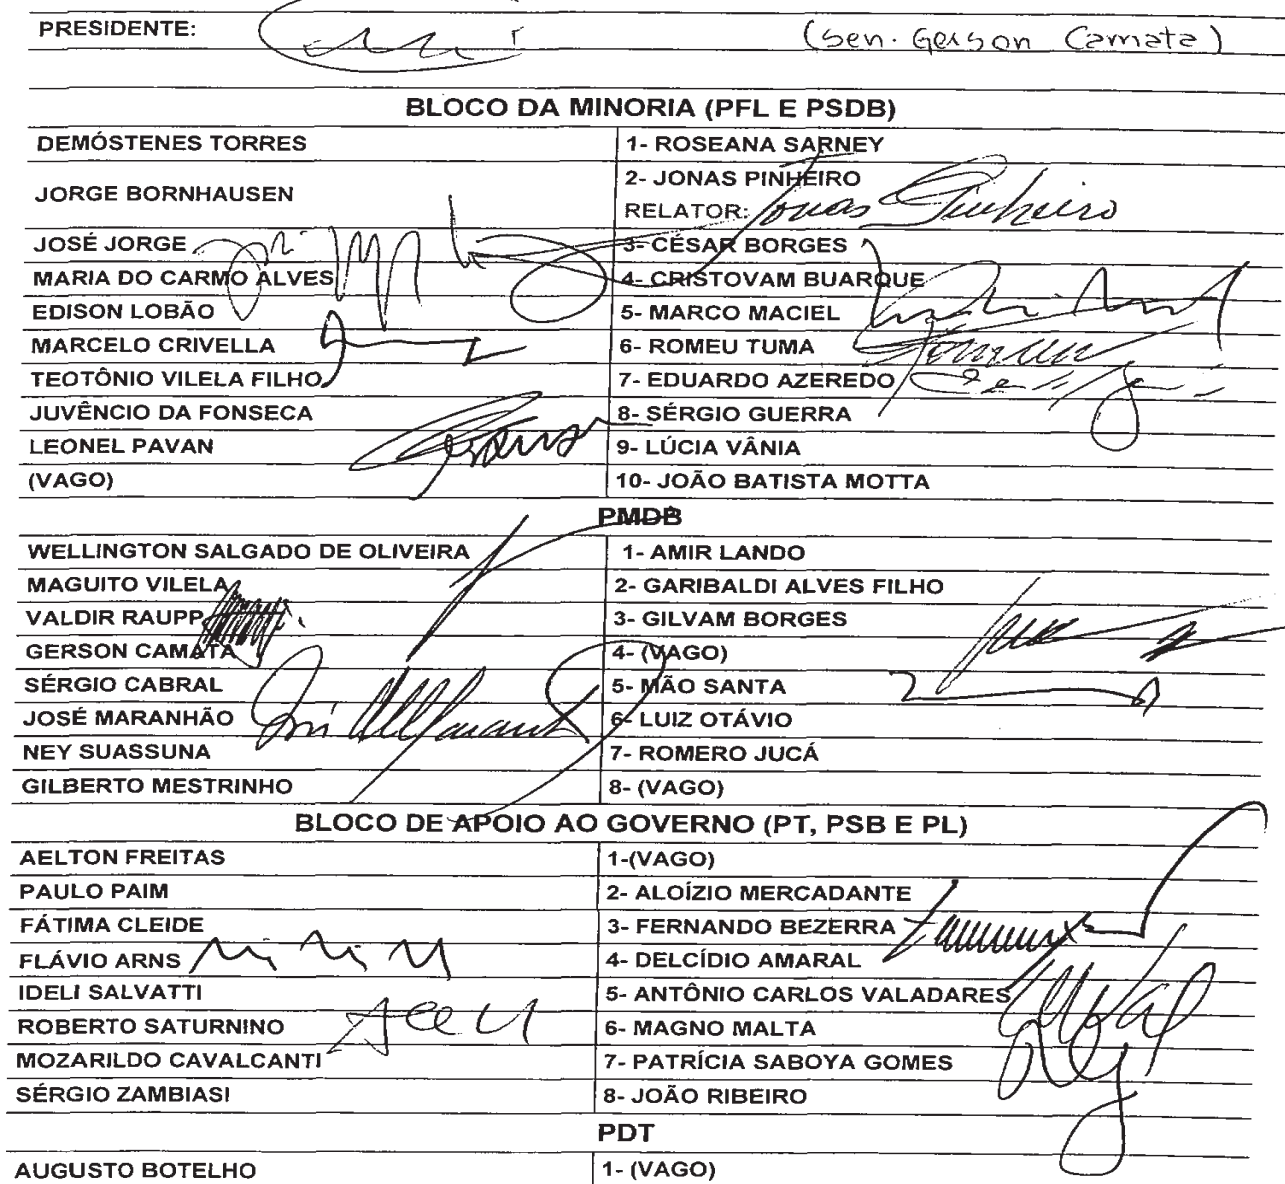 PRESIDENTE: (Sen. Gerson Camata)
BLOCO DA MINORIA (PFL E PSDB)
DEMÓSTENES TORRES 1- ROSEANA SARNEY
JORGE BORNHAUSEN 2- JONAS PINHEIRO
RELATOR: Jonas Pinheiro
JOSÉ JORGE 3- CÉSAR BORGES
MARIA DO CARMO ALVES 4- CRISTOVAM BUARQUE
EDISON LOBÃO 5- MARCO MACIEL
MARCELO CRIVELLA 6- ROMEU TUMA
TEOTÔNIO VILELA FILHO 7- EDUARDO AZEREDO
JUVÊNCIO DA FONSECA 8- SÉRGIO GUERRA
LEONEL PAVAN 9- LÚCIA VÂNIA
(VAGO) 10- JOÃO BATISTA MOTTA
PMDB
WELLINGTON SALGADO DE OLIVEIRA 1- AMIR LANDO
MAGUITO VILELA 2- GARIBALDI ALVES FILHO
VALDIR RAUPP 3- GILVAM BORGES
GERSON CAMATA 4- (VAGO)
SÉRGIO CABRAL 5- MÃO SANTA
JOSÉ MARANHÃO 6- LUIZ OTÁVIO
NEY SUASSUNA 7- ROMERO JUCÁ
GILBERTO MESTRINHO 8- (VAGO)
BLOCO DE APOIO AO GOVERNO (PT, PSB E PL)
AELTON FREITAS 1-(VAGO)
PAULO PAIM 2- ALOÍZIO MERCADANTE
FÁTIMA CLEIDE 3- FERNANDO BEZERRA
FLÁVIO ARNS 4- DELCÍDIO AMARAL
IDELI SALVATTI 5- ANTÔNIO CARLOS VALADARES
ROBERTO SATURNINO 6- MAGNO MALTA
MOZARILDO CAVALCANTI 7- PATRÍCIA SABOYA GOMES
SÉRGIO ZAMBIASI 8- JOÃO RIBEIRO
PDT
AUGUSTO BOTELHO 1- (VAGO)